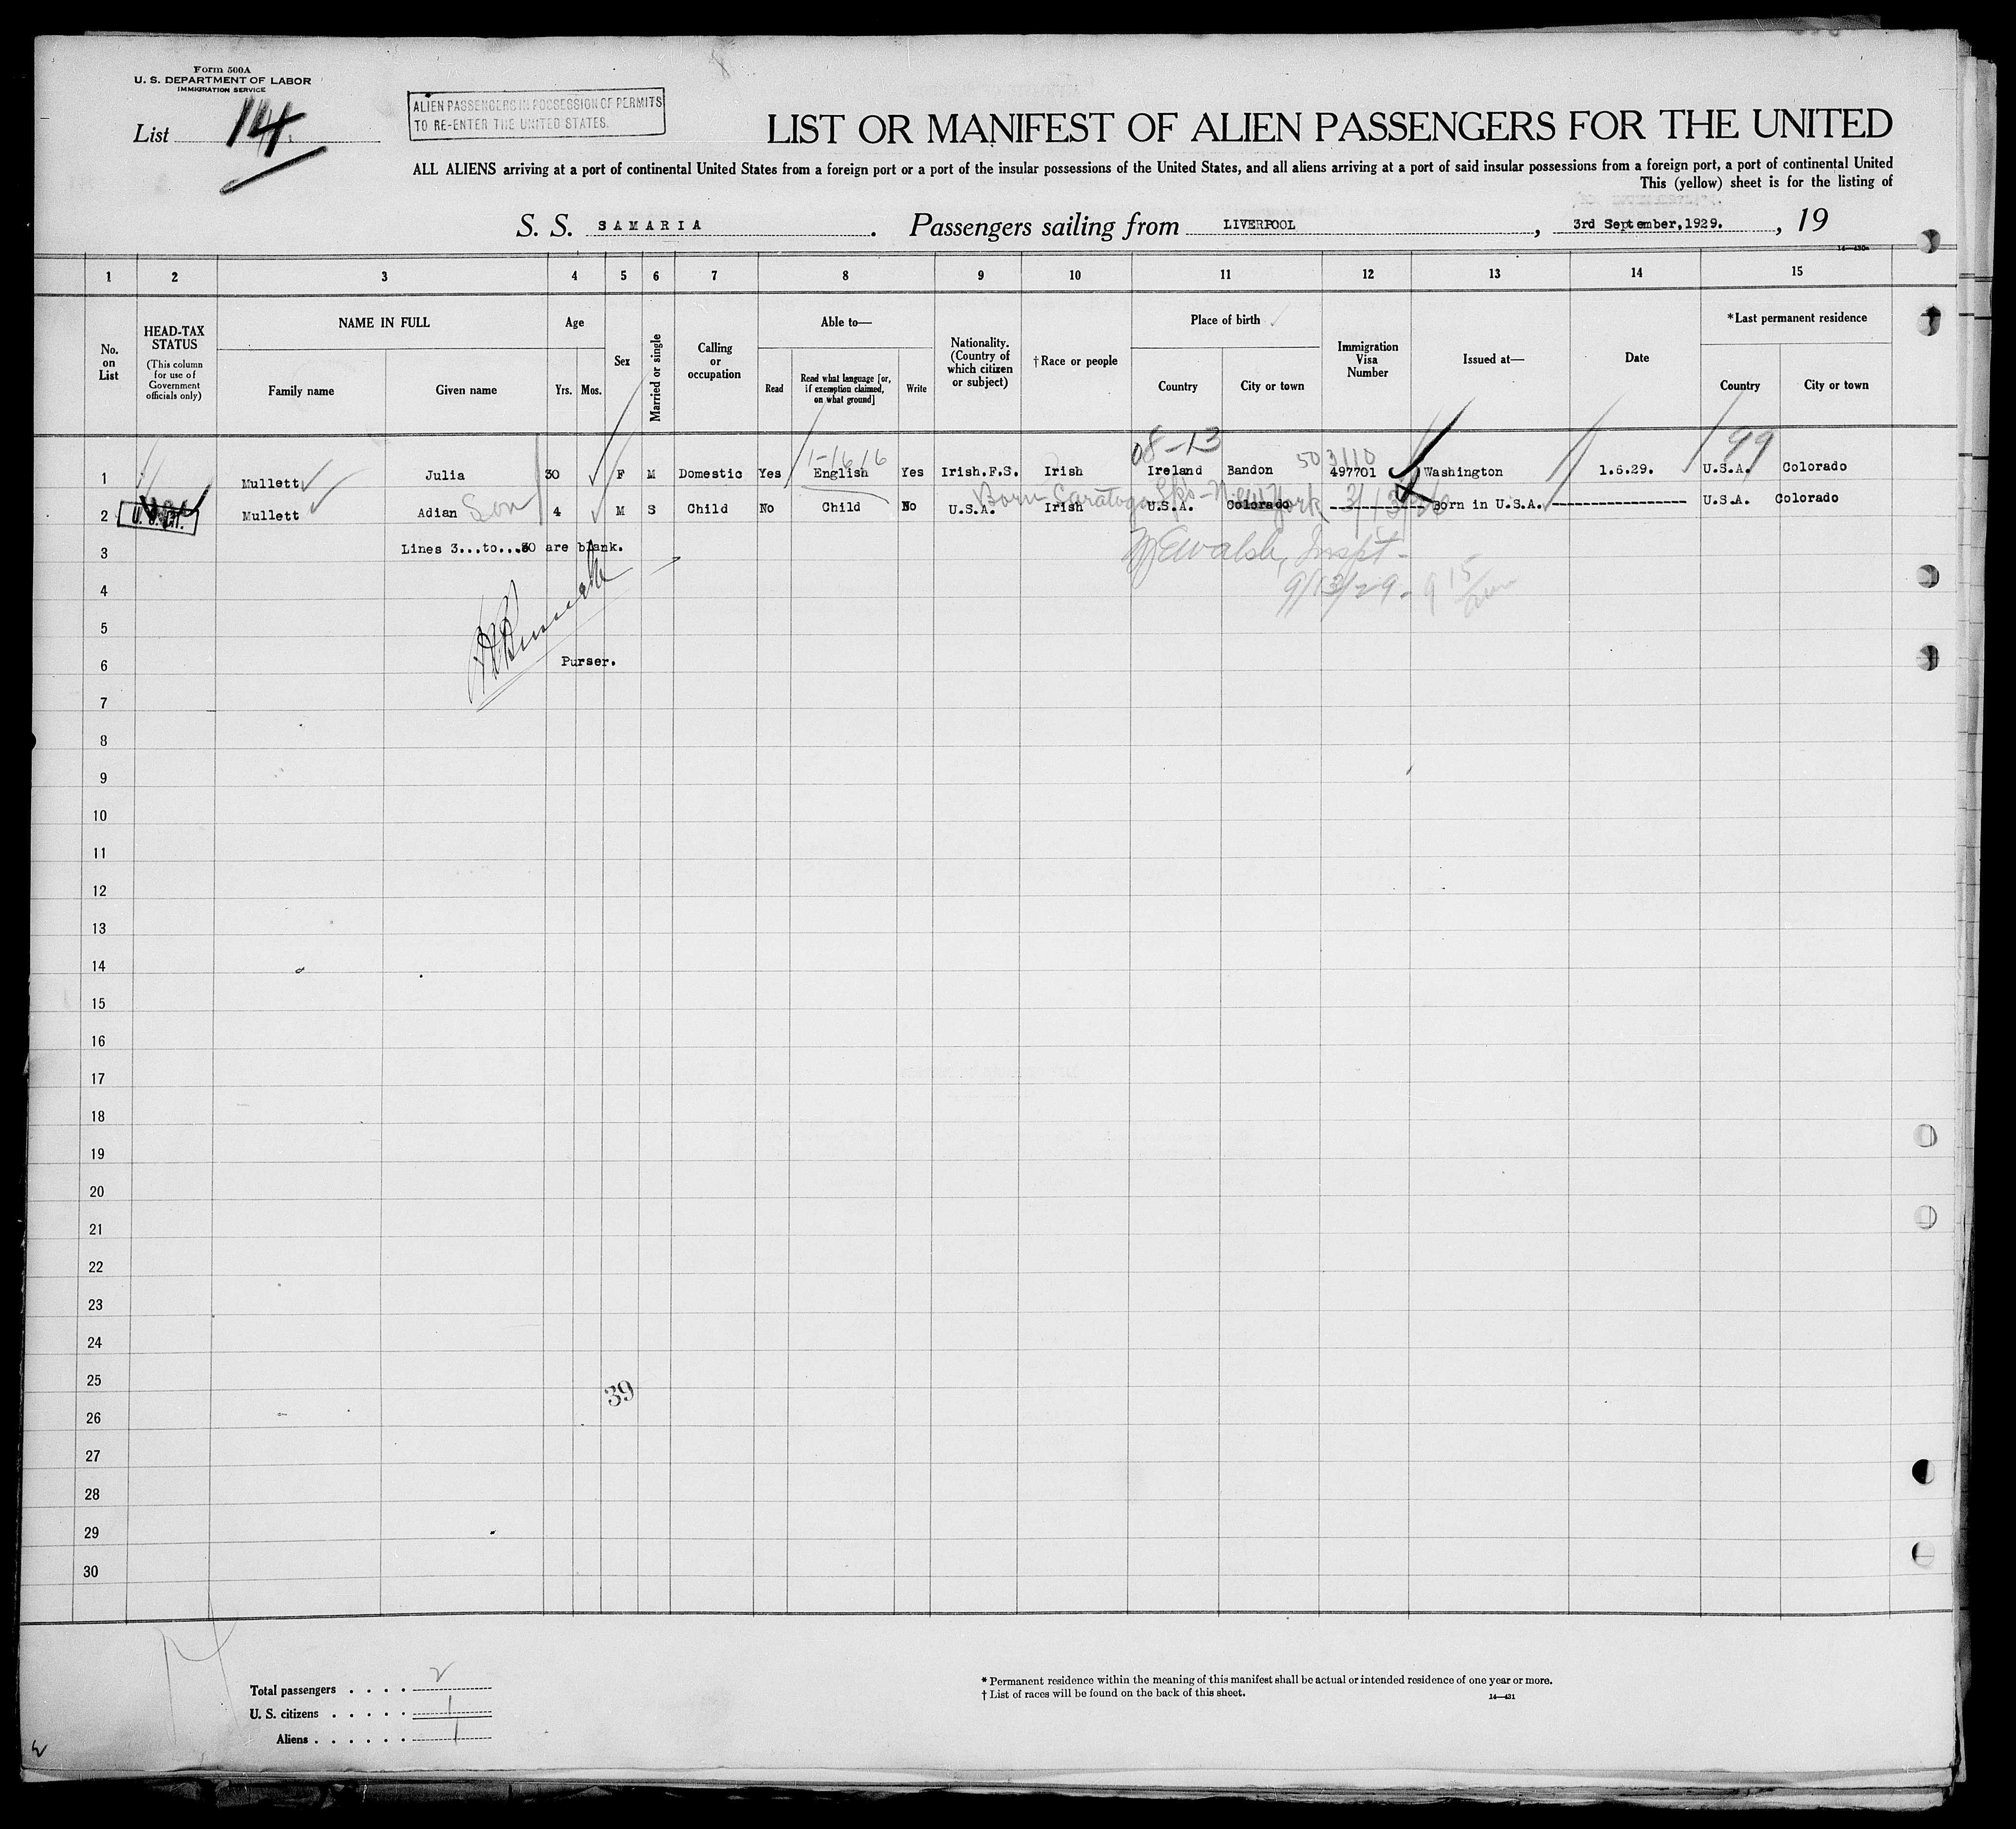 Form 500A
U. S. DEPARTMENT OF LABOR
IMMIGRATION SERVICE
List 14
ALIEN PASSENGERS IN POSSESSION OF PERMITS
TO RE-ENTER THE UNITED STATES.
LIST OR MANIFEST OF ALIEN PASSENGERS FOR THE UNITED
ALL ALIENS arriving at a port of continental United States from a foreign port or a port of the insular possessions of the United States, and all aliens arriving at a port of said insular possessions from a foreign port, a port of continental United
This (yellow) sheet is for the listing of
S. S. SAMARIA . Passengers sailing from LIVERPOOL , 3rd September,1929. , 19
1 2 3 4 5 6 7 8 9 10 11 12 13 14 15
No. on List
HEAD-TAX STATUS
(This column for use of Government officials only)
NAME IN FULL
Family name Given name
Age
Yrs. Mos.
Sex
Married or single
Calling or occupation
Able to—
Read
Read what language [or, if exemption claimed, on what ground]
Write
Nationality. (Country of which citizen or subject)
†Race or people
Place of birth
Country City or town
Immigration Visa Number
Issued at—
Date
*Last permanent residence
Country City or town
08-13 99
1-1616 503110
1 Mullett Julia 30 F M Domestic Yes English Yes Irish.F.S. Irish Ireland Bandon 497701 Washington 1.6.29. U.S.A. Colorado
Born Saratoga Sps - New York 3/13/26
2 Mullett Adian Son 4 M S Child No Child No U.S.A. Irish U.S.A. Colorado Born in U.S.A. U.S.A. Colorado
3 Lines 3...to...30 are blank.
Walsh, Inspt-
4 9/13/29. 9 15
5
6 Purser.
7
8
9
10
11
12
13
14
15
16
17
18
19
20
21
22
23
24
25
39
26
27
28
29
30
Total passengers . . . . 2
U. S. citizens . . . . . 1
Aliens . . . . . . 1
* Permanent residence within the meaning of this manifest shall be actual or intended residence of one year or more.
† List of races will be found on the back of this sheet.
14—431